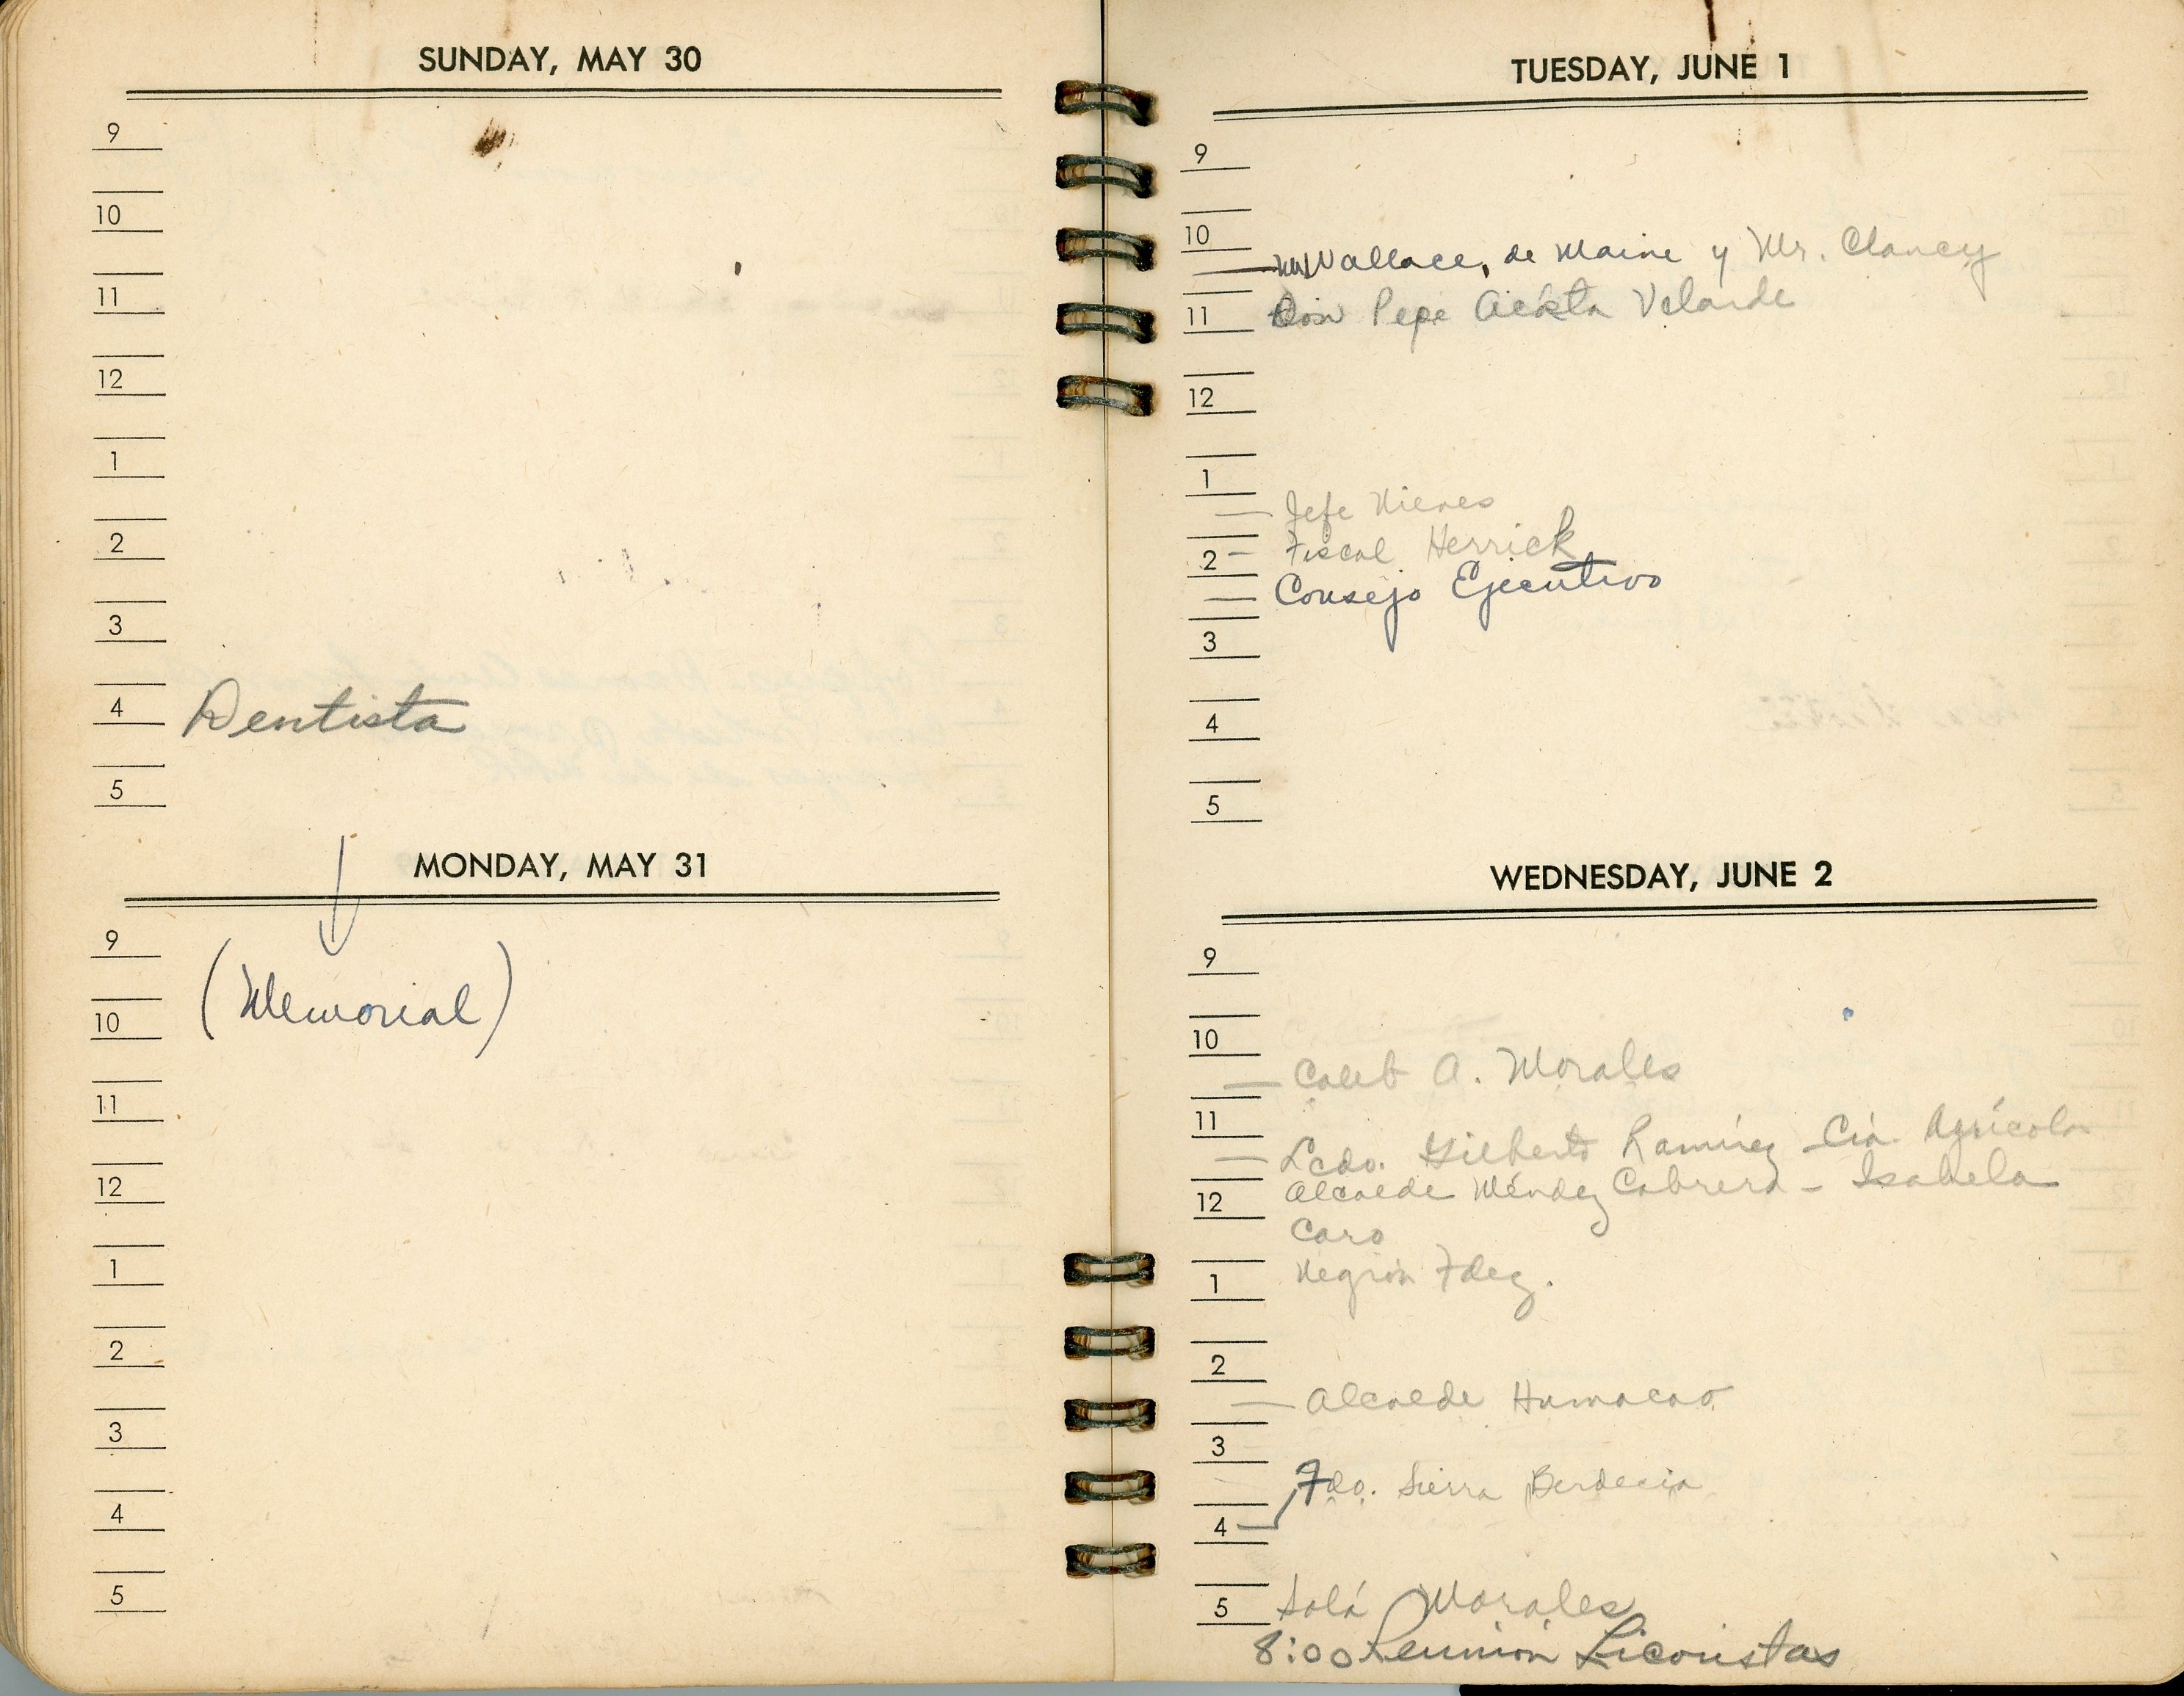 SUNDAY, MAY 30
9
10
11
12
1
2
3
4 Dentista
5
MONDAY, MAY 31
9
(Memorial)
10
11
12
1
2
3
4
5
TUESDAY, JUNE 1
9
10
Wallace, de Maine y Mr. Clancy
11 Don Pepe Acosta Velarde
12
1
Jefe Nieves
2 - Fiscal Herrick
Consejo Ejecutivo
3
4
5
WEDNESDAY, JUNE 2
9
10
Caleb A. Morales
11
Lcdo. Gilberto Ramírez - Cía. Agrícola
12 Alcalde Méndez Cabrera - Isabela
Caro
1 Negrón Fdez.
2
Alcalde Humacao
3
Fdo. Sierra Berdecía
4
5 Solá Morales
8:00 Reunión Licoristas